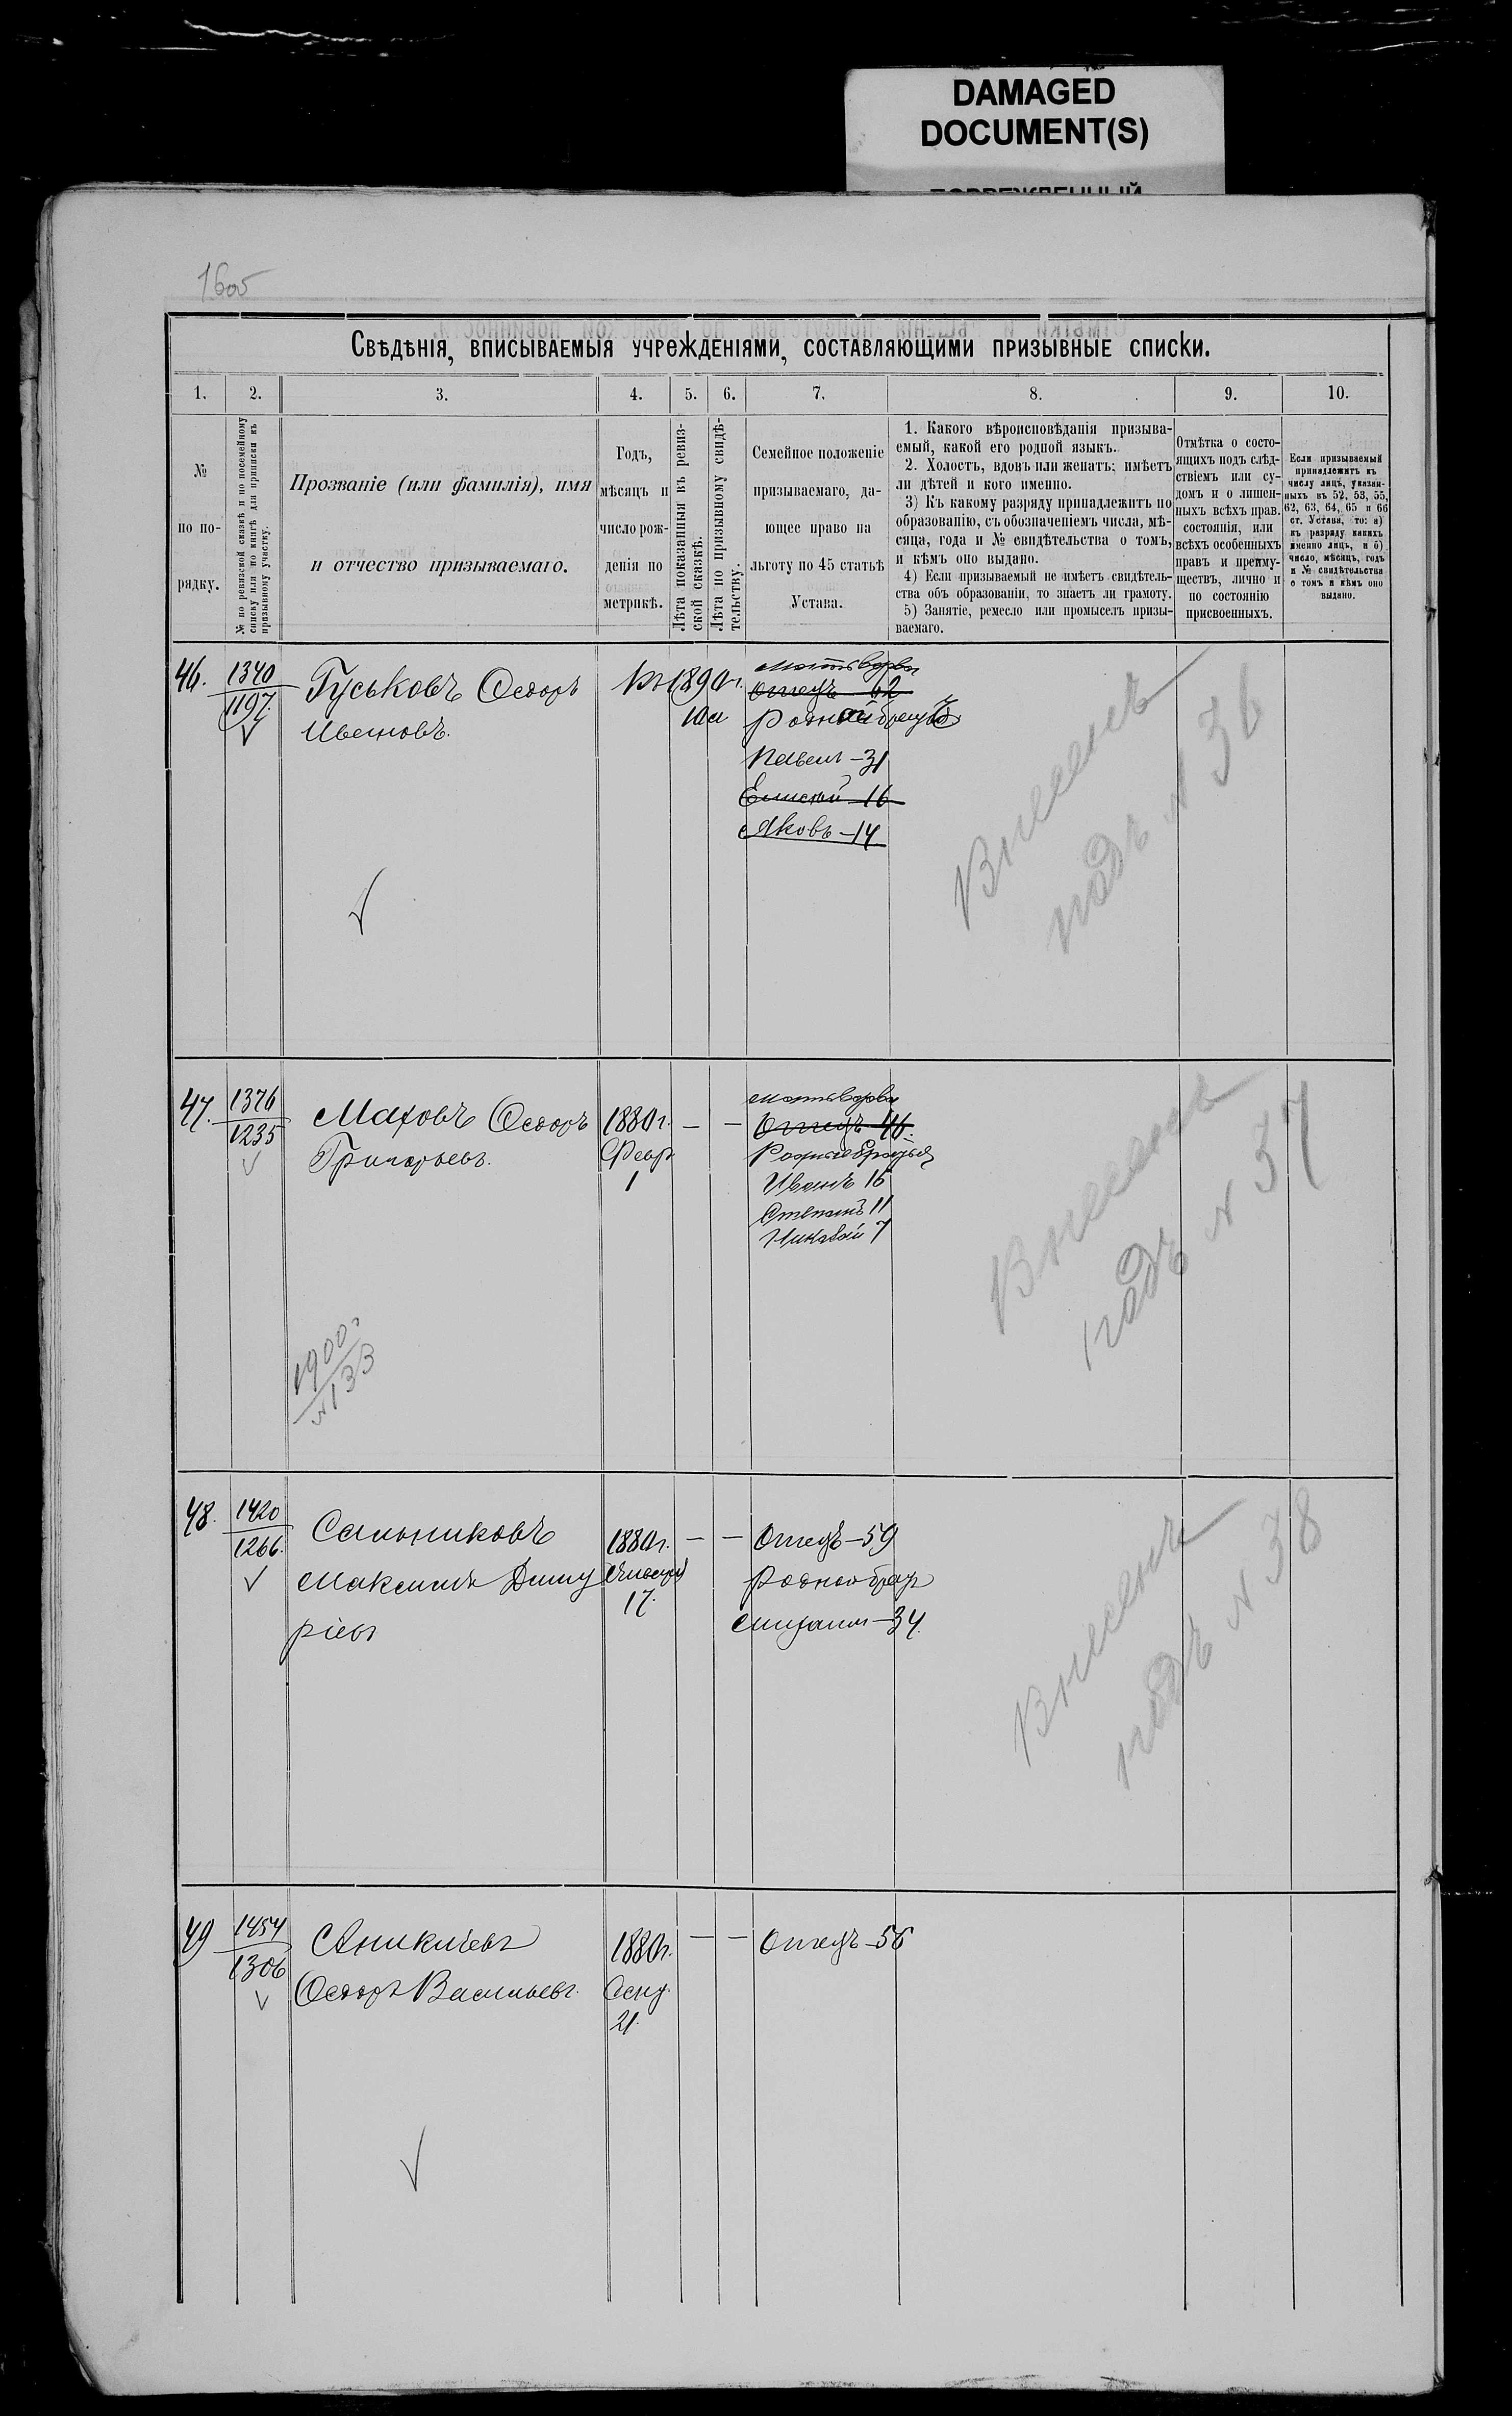 DAMAGED
DOCUMENT(S)
Свѣдѣнія, вписываемыя учрежденіями, составляющими призывные списки.
1. 2. 3. 4. 5. 6. 7. 8. 9. 10.
№
по по-
рядку.
№ по ревизской сказкѣ и по посемейному
списку или по книгѣ для приписки къ
призывному участку.
Прозваніе (или фамилія), имя
и отчество призываемаго.
Годъ,
мѣсяцъ и
число рож-
денія по
метрикѣ.
Лѣта показанныя въ ревиз-
ской сказкѣ.
Лѣта по призывному свидѣ-
тельству.
Семейное положеніе
призываемаго, да-
ющее право на
льготу по 45 статьѣ
Устава.
1. Какого вѣроисповѣданія призыва-
емый, какой его родной языкъ.
2. Холостъ, вдовъ или женатъ; имѣетъ
ли дѣтей и кого именно.
3) Къ какому разряду принадлежитъ по
образованію, съ обозначеніемъ числа, мѣ-
сяца, года и № свидѣтельства о томъ,
и кѣмъ оно выдано.
4) Если призываемый не имѣетъ свидѣтель-
ства объ образованіи, то знаетъ ли грамоту.
5) Занятіе, ремесло или промыселъ призы-
ваемаго.
Отмѣтка о состо-
ящихъ подъ слѣд-
ствіемъ или су-
домъ и о лишен-
ныхъ всѣхъ прав.
состоянія, или
всѣхъ особенныхъ
правъ и преиму-
ществъ, лично и
по состоянію
присвоенныхъ.
Если призываемый
принадлежитъ къ
числу лицъ, указан-
ныхъ въ 52, 53, 55,
62, 63, 64, 65 и 66
ст. Устава, то: а)
къ разряду какихъ
именно лицъ, и б)
число, мѣсяцъ, годъ
и № свидѣтельства
о томъ и кѣмъ оно
выдано.
46.
1340
1197.
Гуськовъ Ѳедоръ
Ивановъ.
Отецъ 62
Павелъ - 31
16
Яковъ - 14
Внесенъ
подъ № 36
47.
1376
1235
Маховъ Ѳедоръ
Григорьевъ.
1880г.
Февр
1
— —
Отецъ 46.
Родные братья
Иванъ 16
Степанъ 11
Николай 7
1900г
№ 133
Внесенъ
подъ № 37
48.
1420
1266.
Сальниковъ
Максимъ Дмит
ріевъ
1880г.
17.
— —
Отецъ - 59
Родной братъ
34.
Внесенъ
подъ № 38
49
1454
1306
Аникіевъ
Ѳедоръ Васильевъ.
1880г.
21.
— —
Отецъ - 56